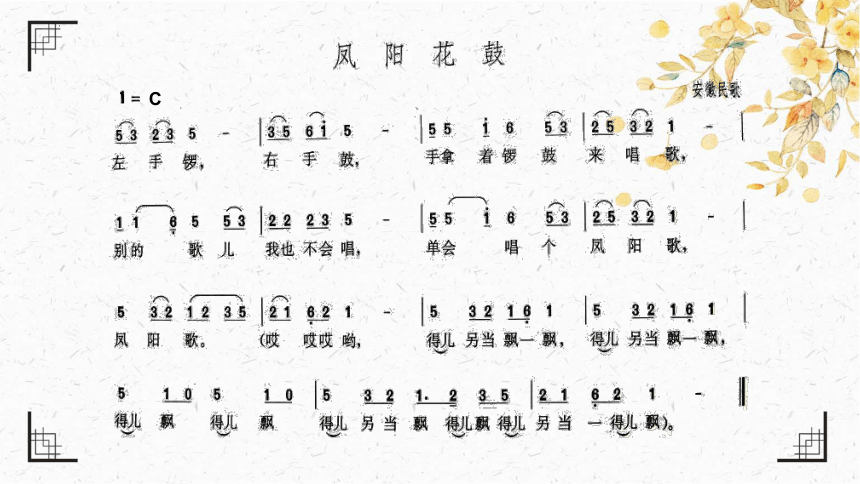 凤 阳 花 鼓
安徽民歌
1 = C
5 3 2 3 5 - | 3 5 6 i 5 - | 5 5 i 6 5 3 | 2 5 3 2 1 - |
左 手 锣， 右 手 鼓， 手拿 着 锣 鼓 来 唱 歌，
1 1 6 5 5 3 | 2 2 2 3 5 - | 5 5 i 6 5 3 | 2 5 3 2 1 - |
别的 歌 儿 我也 不会 唱， 单会 唱 个 凤 阳 歌，
5 3 2 1 2 3 5 | 2 1 6 2 1 - | 5 3 2 1 6 1 | 5 3 2 1 6 1 |
凤 阳 歌。 (哎 哎哎 哟， 得儿 另当 飘一 飘， 得儿 另当 飘一 飘，
5 1 0 5 1 0 | 5 3 2 1· 2 3 5 | 2 1 6 2 1 - ‖
得儿 飘 得儿 飘 得儿 另 当 飘 得儿 飘 得儿 另 当 一 得儿 飘)。